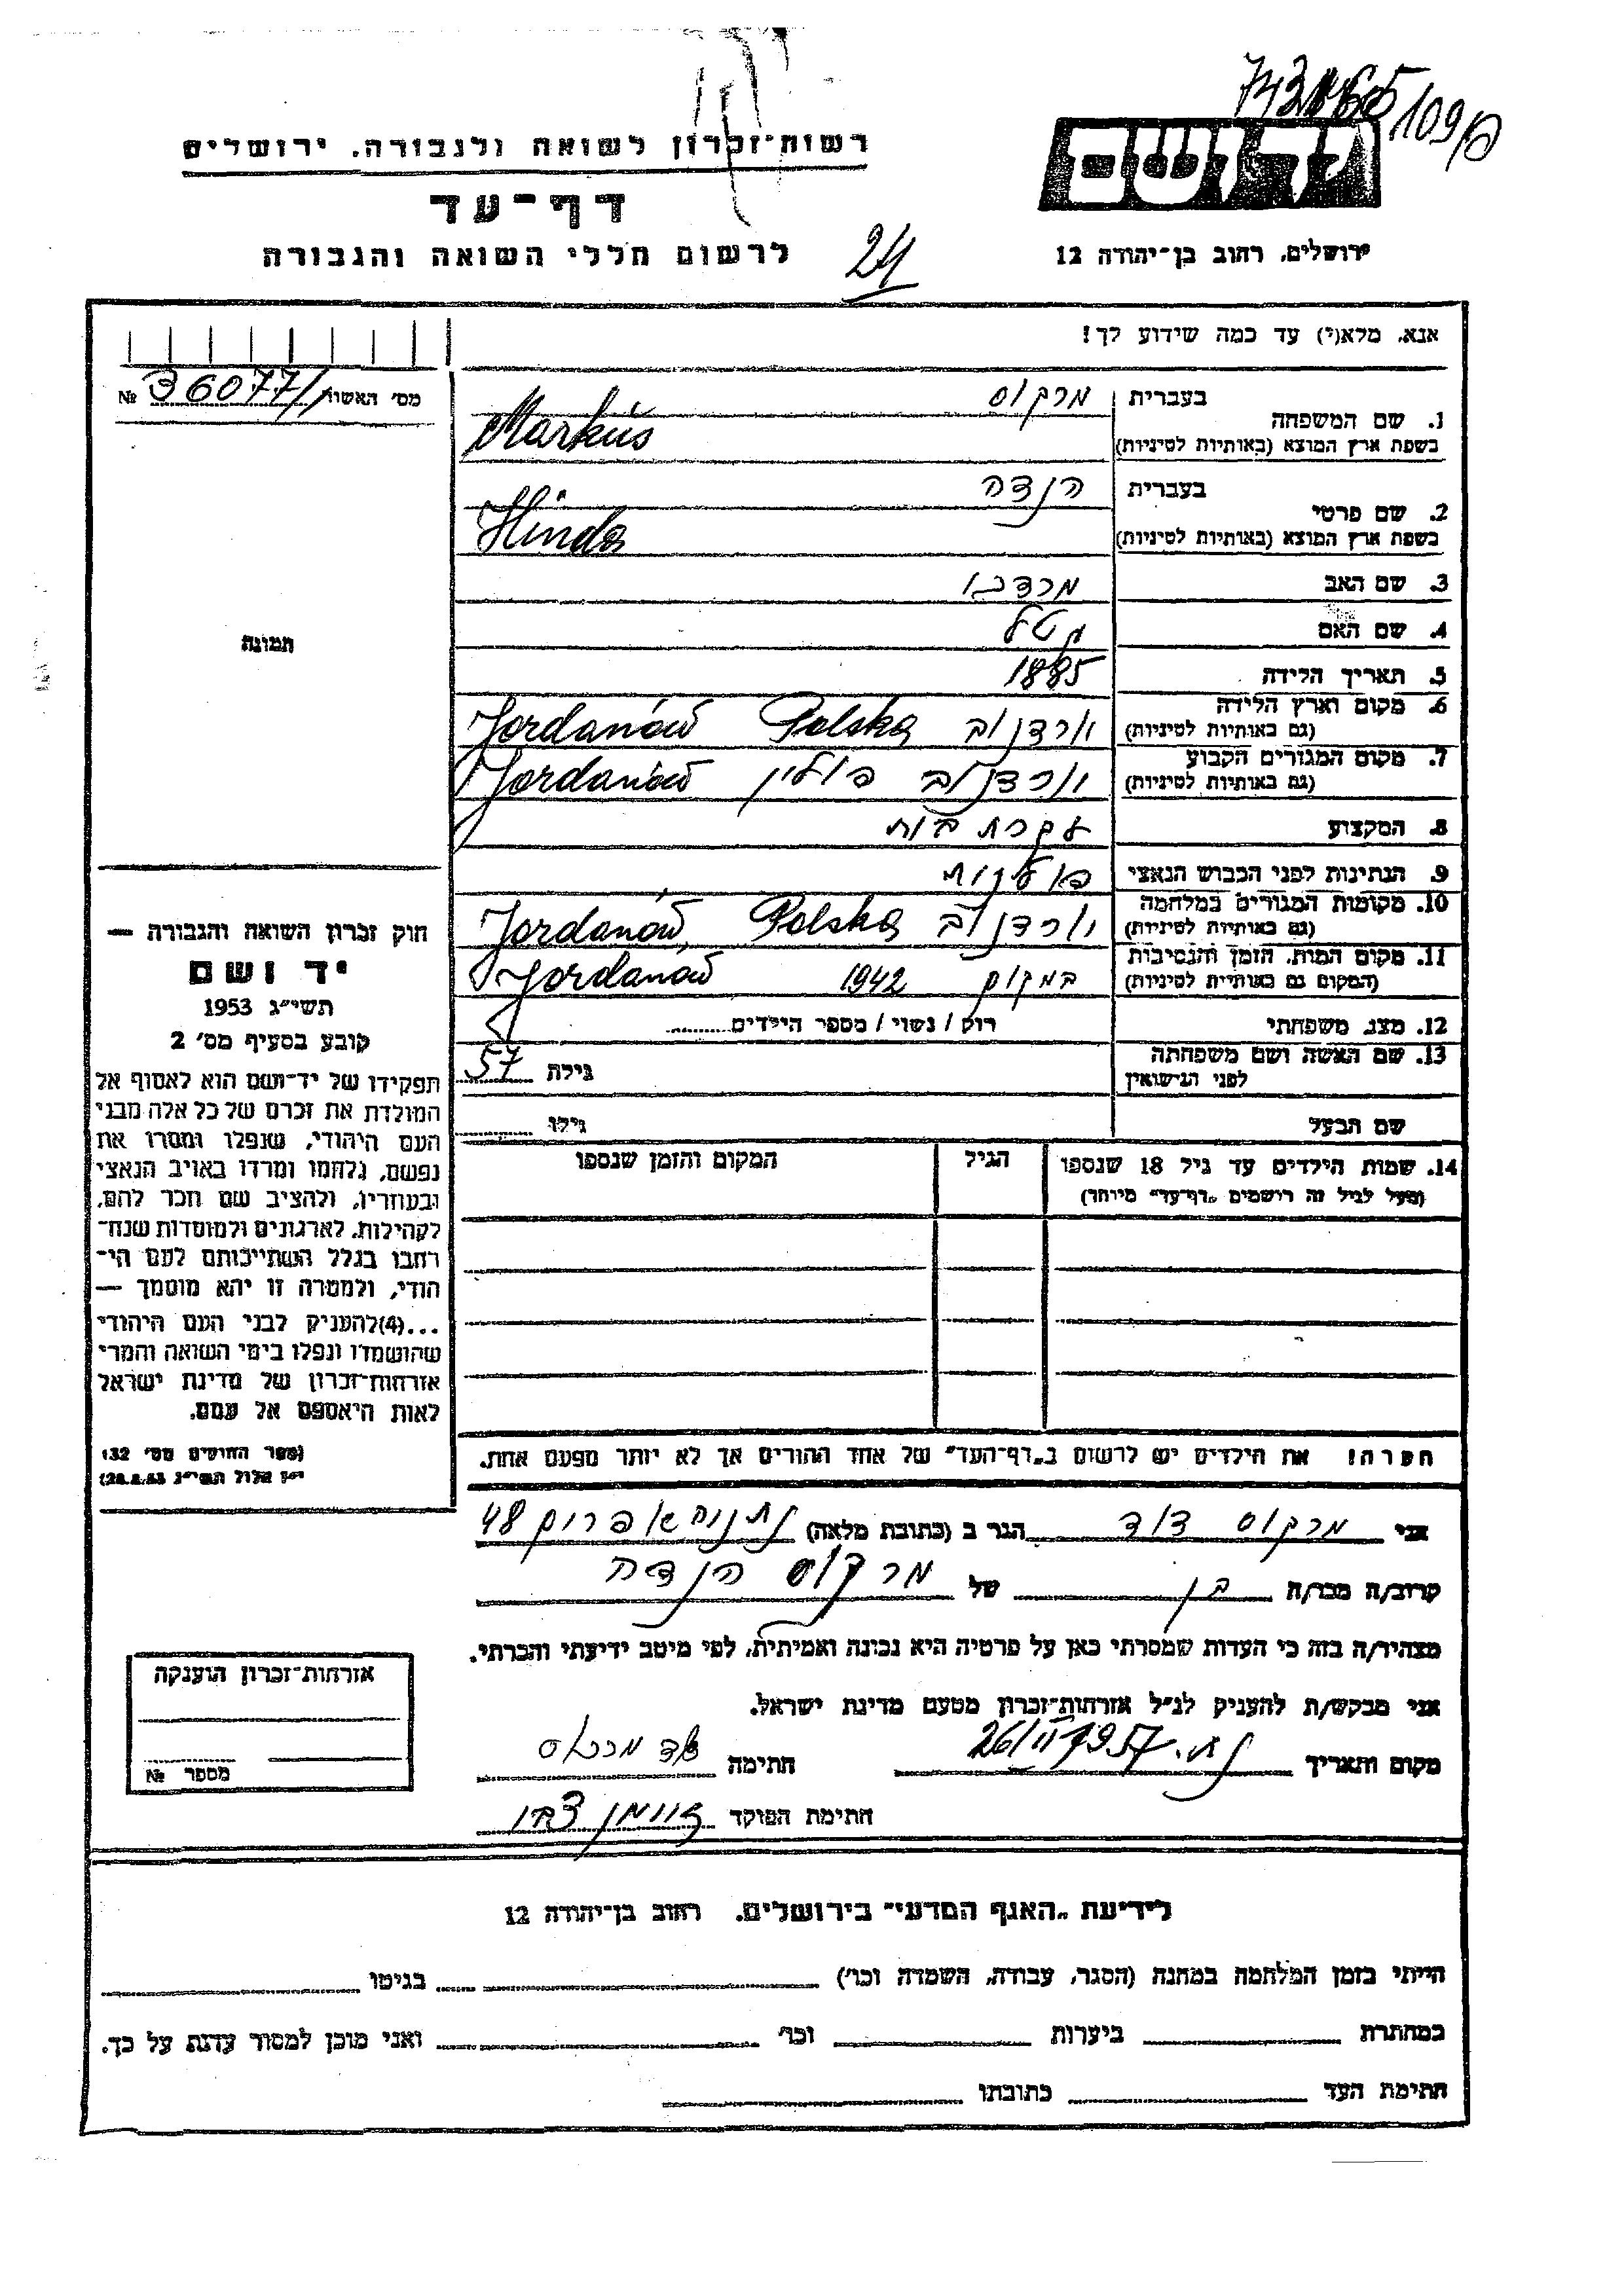 109/פ
רשות־זכרון לשואה ולגבורה, ירושלים
דף־עד
לרשום חללי השואה והגבורה
24
ירושלים, רחוב בן־יהודה 12
אנא, מלא(י) עד כמה שידוע לך!
מס' האשור № 36077
1. שם המשפחה
בעברית מרקוס
בשפת ארץ המוצא (באותיות לטיניות) Markus
2. שם פרטי
בעברית הנדה
בשפת ארץ המוצא (באותיות לטיניות) Hinda
3. שם האב מרדכי
4. שם האם
5. תאריך הלידה 1885
6. מקום וארץ הלידה (גם באותיות לטיניות) יורדנוב Polska Jordanów
7. מקום המגורים הקבוע (גם באותיות לטיניות) יורדנוב פולין Jordanów
8. המקצוע עקרת בית
9. הנתינות לפני הכבוש הנאצי פולנית
10. מקומות המגורים במלחמה (גם באותיות לטיניות) יורדנוב Polska Jordanów
11. מקום המות, הזמן והנסיבות (המקום גם באותיות לטיניות) במקום 1942 Jordanów
12. מצב משפחתי רווק / נשוי / מספר הילדים
13. שם האשה ושם משפחתה לפני הנישואין גילה 57
שם הבעל גילו
14. שמות הילדים עד גיל 18 שנספו
(מעל לגיל זה רושמים "דף־עד" מיוחד)
הגיל
המקום והזמן שנספו
הערה! את הילדים יש לרשום ב"דף־העד" של אחד ההורים אך לא יותר מפעם אחת.
תמונה
חוק זכרון השואה והגבורה —
יד ושם
תשי"ג 1953
קובע בסעיף מס' 2
תפקידו של יד־ושם הוא לאסוף אל
המולדת את זכרם של כל אלה מבני
העם היהודי, שנפלו ומסרו את
נפשם, נלחמו ומרדו באויב הנאצי
ובעוזריו, ולהציב שם וזכר להם,
לקהילות, לארגונים ולמוסדות שנח־
רבו בגלל השתייכותם לעם הי־
הודי, ולמטרה זו יהא מוסמך —
...(4)להעניק לבני העם היהודי
שהושמדו ונפלו בימי השואה והמרי
אזרחות־זכרון של מדינת ישראל
לאות היאספם אל עמם.
(ספר החוקים מס' 132
י"ז אלול תשי"ג 28.8.53)
אני מרקוס דוד הגר ב (כתובת מלאה) נתניה אפרים 48
קרוב/ה מכר/ה בן של מרקוס הנדה
מצהיר/ה בזה כי העדות שמסרתי כאן על פרטיה היא נכונה ואמיתית, לפי מיטב ידיעתי והכרתי.
אני מבקש/ת להעניק לנ"ל אזרחות־זכרון מטעם מדינת ישראל.
מקום ותאריך חתימה דוד מרקוס
חתימת הפוקד
אזרחות־זכרון הוענקה
מספר №
לידיעת "האגף המדעי" בירושלים, רחוב בן־יהודה 12
הייתי בזמן המלחמה במחנה (הסגר, עבודה, השמדה וכו') בגיטו
במחתרת ביערות וכו' ואני מוכן למסור עדות על כך.
חתימת העד כתובתו